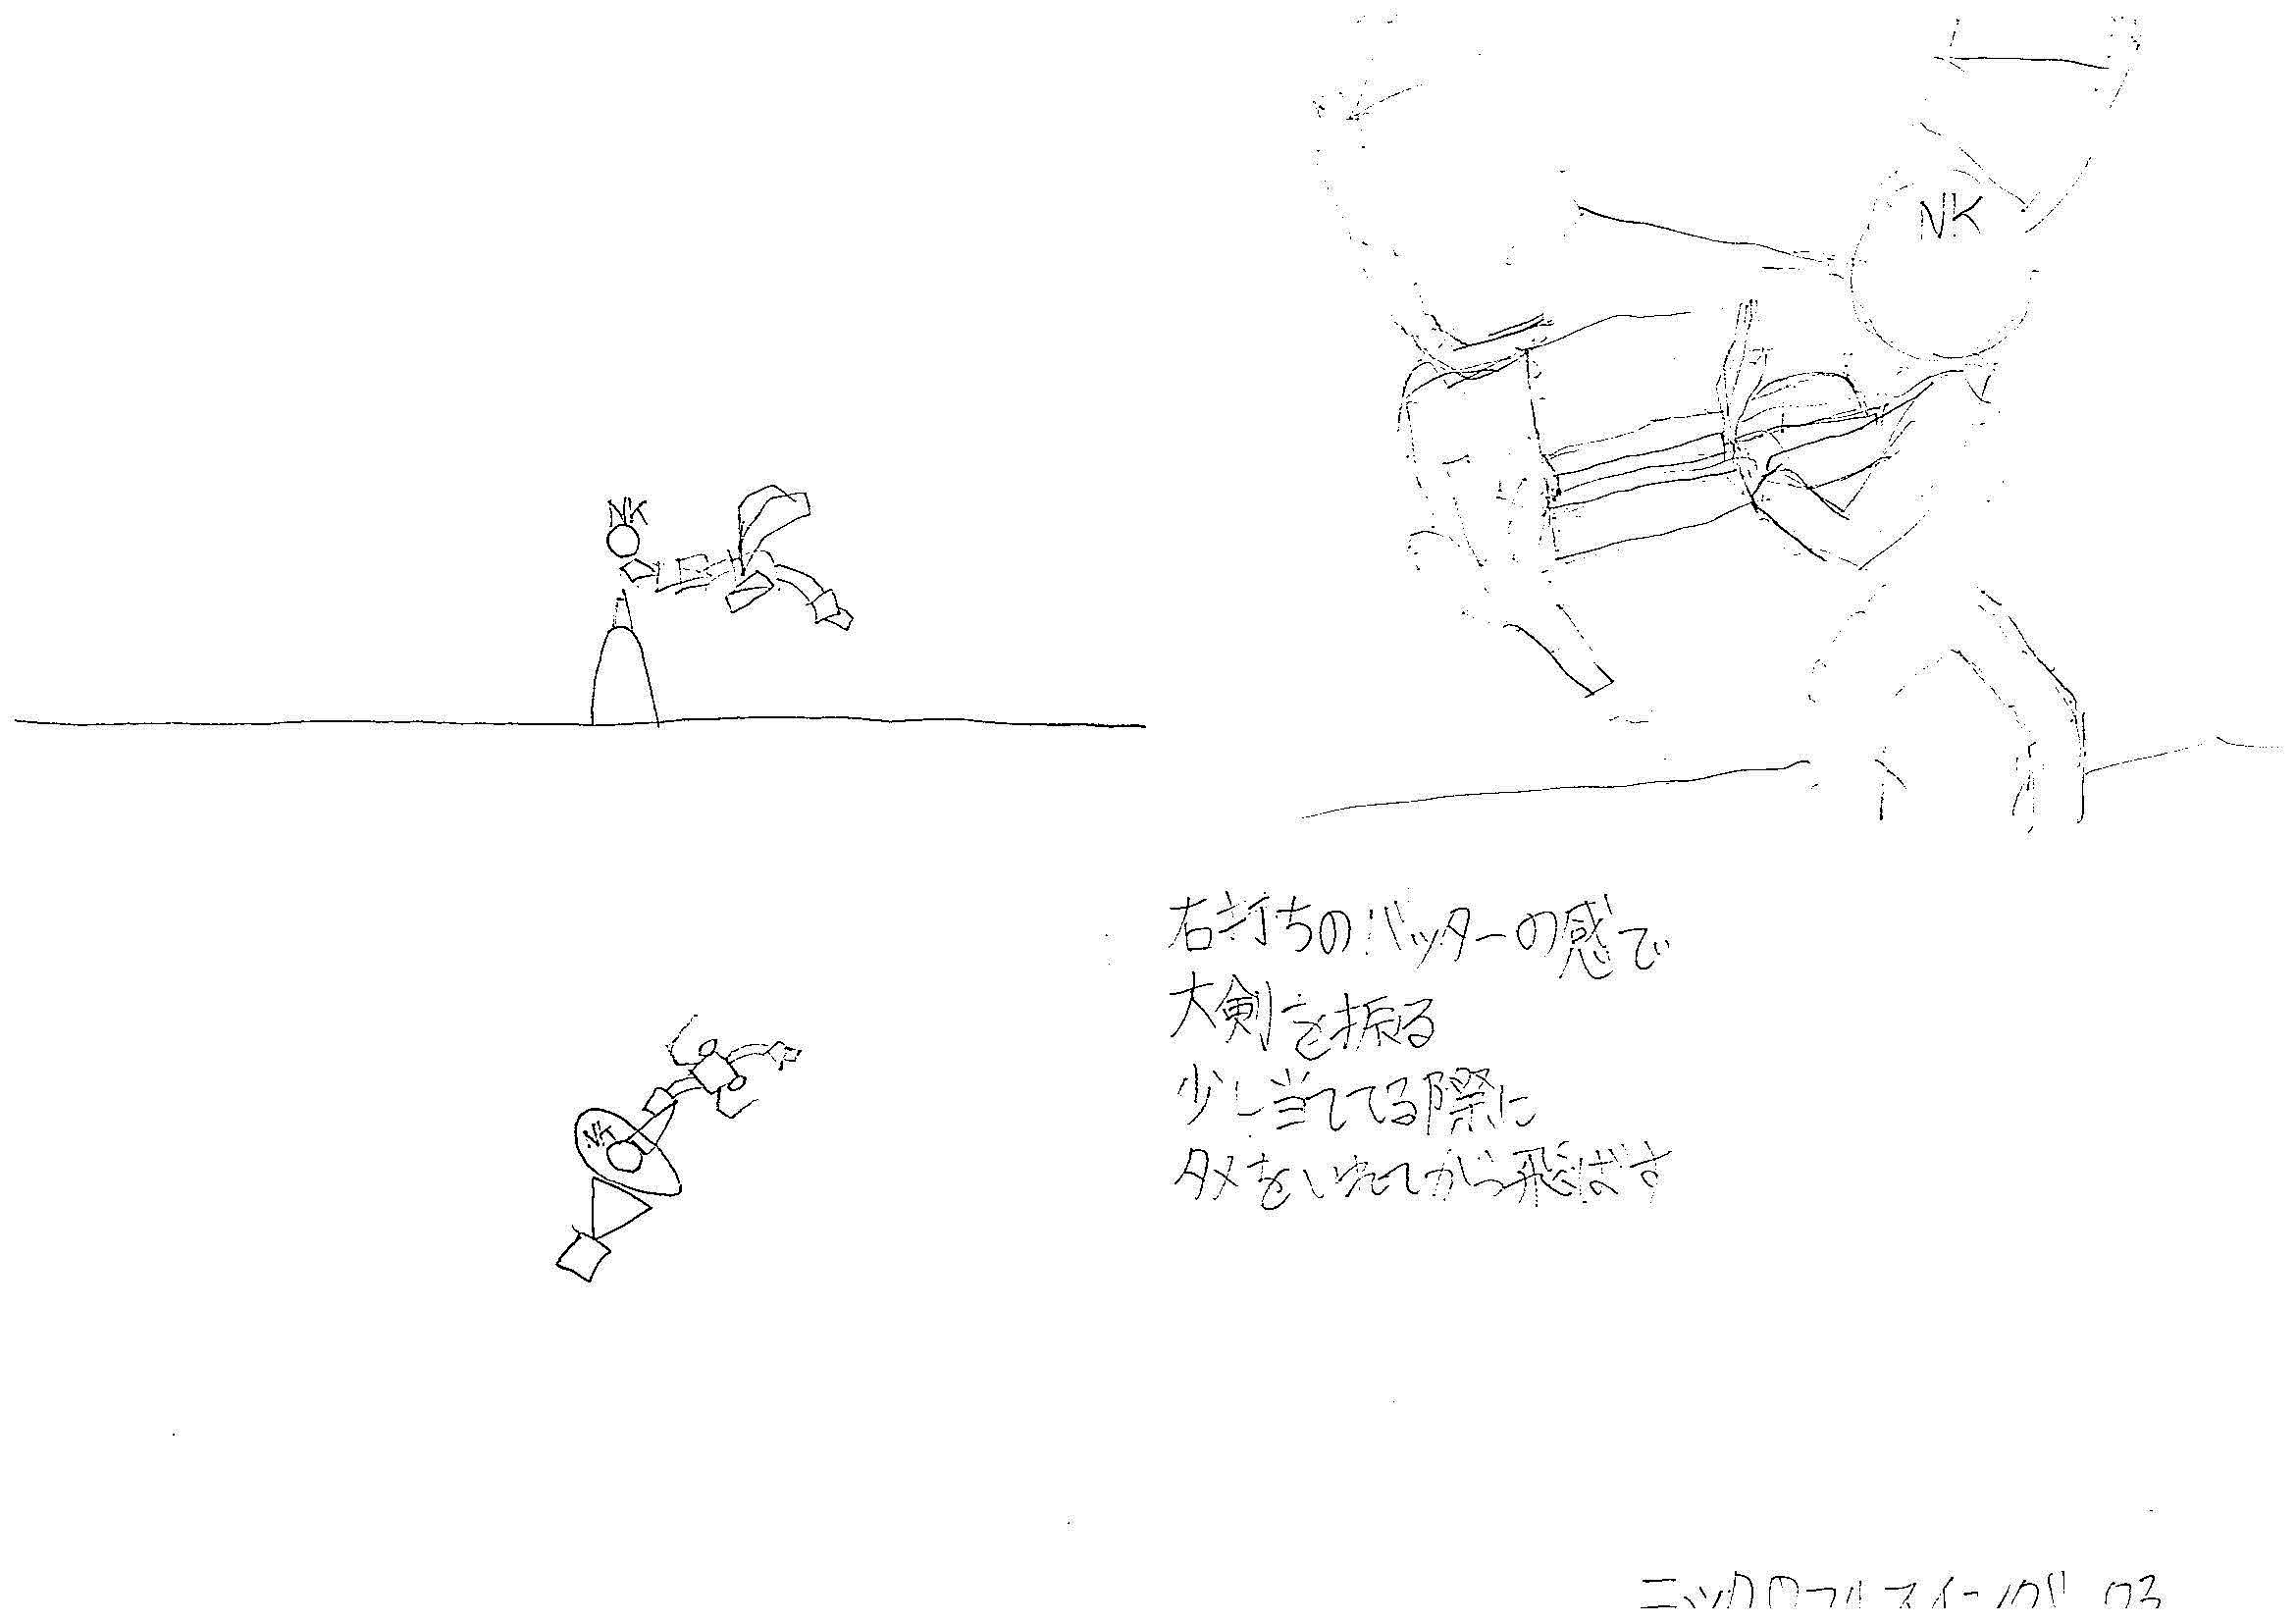 NK
NK
右打ちのバッターの感で
大剣を振る
少し当ててる際に
タメをいれてから飛ばす
NK
ニックのフルスイング 03